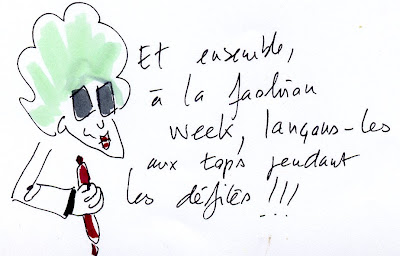 Et ensemble,
à la fashion
week, lançons-les
aux tops pendant
les défilés !!!